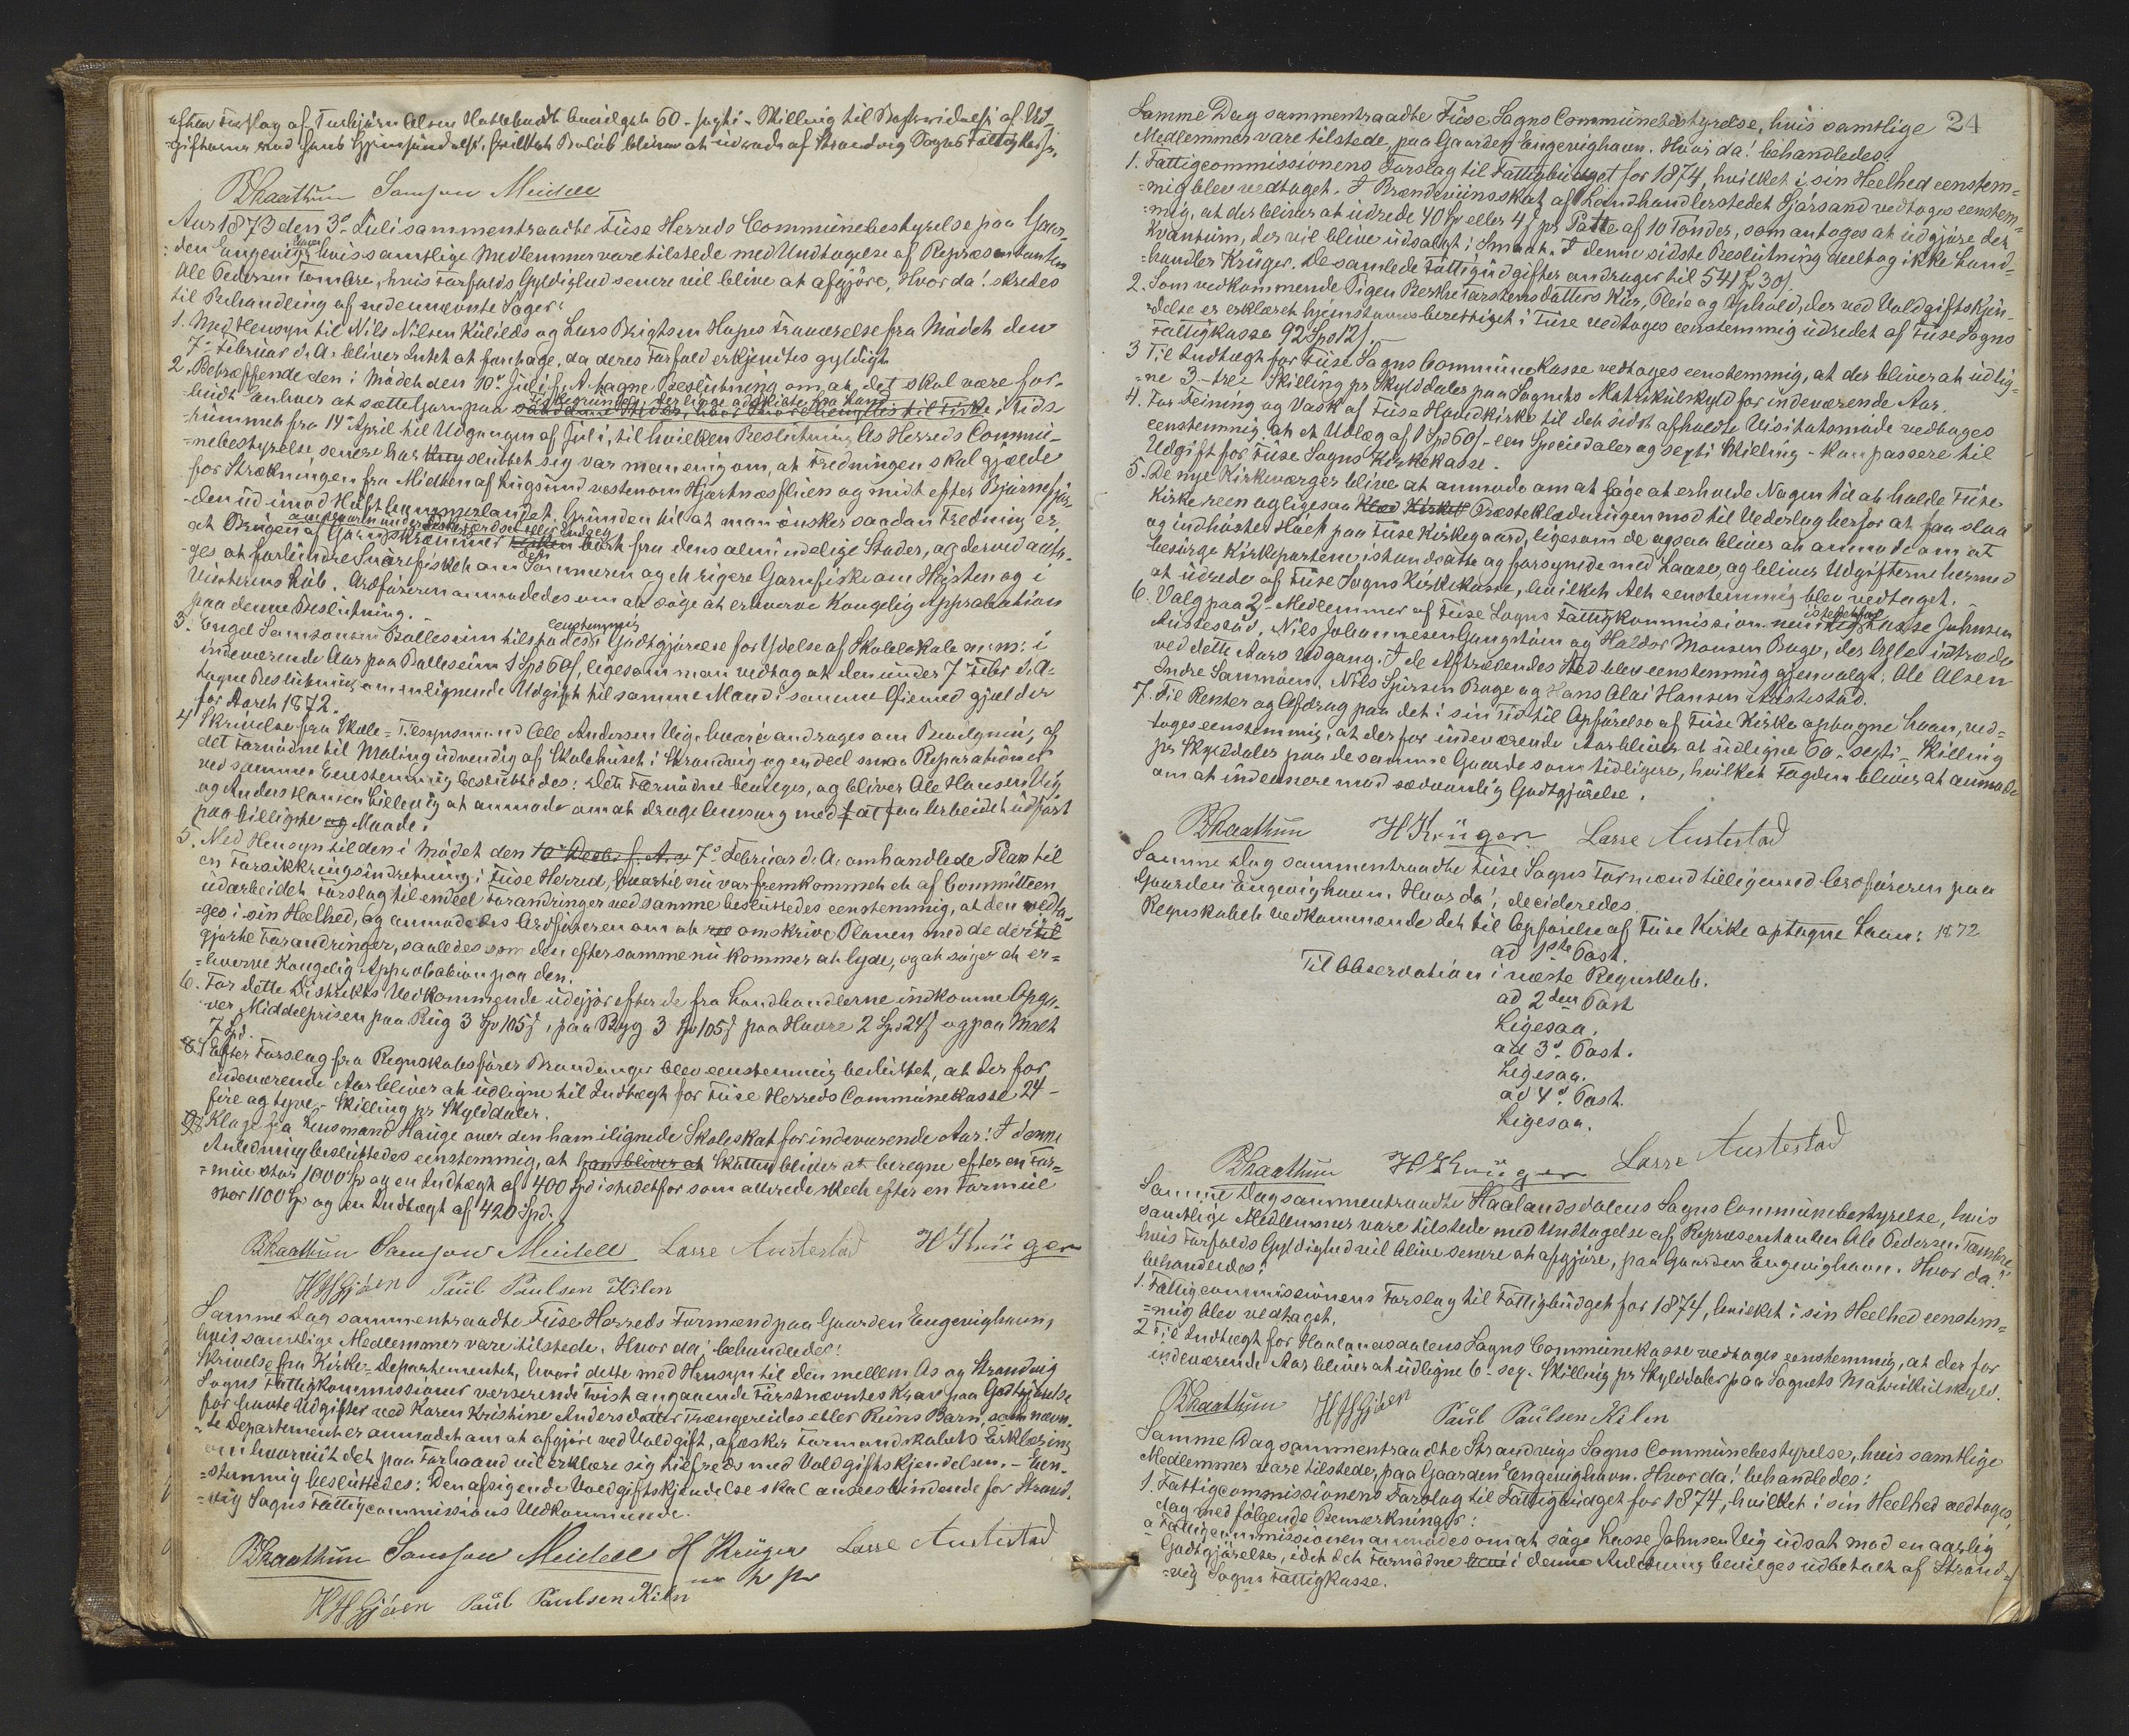 efter Forslag af Torbjörn Olsen Hatlebrudt bevilgedes 60 - sexti - Skilling til Bestridelse af Ud-
gifterne ved hans Hjemsendelse, hvilket Beløb bliver at udrede af Strandvig Sogns Fattigkasse.
BKaathum Samson Meidell
Aar 1873 den 3die Juli sammentraadte Fuse Herreds Communebestyrelse paa Gaar-
den Engevighavn, hvis samtlige Medlemmer vare tilstede med Undtagelse af Repræsentanten
Ole Pedersen Tombre, hvis Forfalds Gyldighed senere vil blive at afgjöre. Hvor da! skredes
til Behandling af nedennævnte Sager:
1. Med Hensyn til Nils Nilsen Kulilds og Lars Brigtsen Hopes Fraværelse fra Mödet den
7de Februar d. A. bliver Intet at foretage, da deres Forfald erkjendtes gyldigt.
2. Betræffende den i Mödet den 10de Juli f. A. tagne Beslutning om at det skal være for-
budt enhver at sætte Garn paa Fiskegrunde, der ligge adskilte fra Land
saadanne Steder, hvor Snöre benyttes til Fiske i Tids-
rummet fra 14de April til Udgangen af Juli, til hvilken Beslutning Os Herreds Commu-
nebestyrelse senere har sluttet sig var man enig om, at Fredningen skal gjælde
for Strækningen fra Midten af Lugsund vestenom Hjartnæsflüen og midt efter Björnefjor-
den ud imod Hufthammerlandet. Grunden til at man önsker saadan Fredning er,
at Brugen af Garn skræmmer Fisken bort fra dens almindelige Steder, og derved anta-
ges at forhindre Snörefisket om Sommeren og et rigere Garnfiske om Hösten og i
Vinterens Löb. Ordföreren anmodedes om at söge at erhverve Kongelig Approbation
paa denne Beslutning.
3. Engel Samsonsen Balleseim tilstodes eenstemmig Godtgjörelse for Ydelse af Skolelokale m: m: i
indeværende Aar paa Balleseim 1 Spd 60 ſ, ligesom man vedtog at den under 7de Febr. d. A.
tagne Beslutning om en lignende Udgift til samme Mand i samme Öiemed gjælder
for Aaret 1872.
4 Skrivelse fra Skole-Tilsynsmand Ole Andersen Uig, hvori andrages om Bevilgning af
det Fornödne til Maling udvendig af Skolehuset i Strandvig og endeel smaa Reparationer
ved samme. Eenstemmig besluttedes: Det Fornödne bevilges, og bliver Ole Hansen Uig
og Anders Hansen Lillevig at anmode om at drage Omsorg med at faa Arbeidet udfört
paa billigste Maade.
5. Med Hensyn til den i Mödet den 10de Decbr f. A. og 7de Februar d. A. omhandlede Plan til
en Forsikkringsindretning i Fuse Herred, hvortil nu var fremkommet et af Committeen
udarbeidet Forslag til endeel Forandringer ved samme besluttedes eenstemmig, at den vedta-
ges i sin Heelhed, og anmodedes Ordföreren om at omskrive Planen med de dertil
gjorte Forandringer, saaledes som den efter samme nu kommer at lyde, og at söge at er-
hverve Kongelig Approbation paa den.
6. For dette Distrikts Vedkommende udgjör efter de fra Landhandlerne indkomne Opga-
ver Middelprisen paa Rug 3 Spd 105 ſ, paa Byg 3 Spd 105 ſ paa Havre 2 Spd 24 ſ og paa Malt
7 Spd.
8. Efter Forslag fra Regnskabsförer Brandanger blev eenstemmig besluttet, at der for
indeværende Aar bliver at udligne til Indtægt for Fuse Herreds Communekasse 24 -
fire og tyve - Skilling pr Skylddaler.
Klage fra Lensmand Hauge over den ham ilignede Skoleskat for indeværende Aar! I denne
Anledning besluttedes eenstemmig, at han bliver at Skatten bliver at beregne efter en For-
mue stor 1000 Spd og en Indtægt af 400 Spd istedetfor som allerede skeet efter en Formue
stor 1100 Spd og en Indtægt af 420 Spd.
BKaathum Samson Meidell Lasse Austestad H Krüger
HHGjöen Paul Paulsen Kilen
Samme Dag sammentraadte Fuse Herreds Formænd paa Gaarden Engevighavn,
hvis samtlige Medlemmer vare tilstede. Hvor da! behandledes:
Skrivelse fra Kirke-Departementet, hvori dette med Hensyn til den mellem Os og Strandvig
Sogns Fattigkommissioner verserende Tvist angaaende Förstnævntes Krav paa Godtgjörelse
for havte Udgifter ved Karen Kristine Andersdatter Trængereides eller Runs Barn, som nævn-
te Departement er anmodet om at afgjöre ved Voldgift, afæsker Formandskabets Erklæring
om hvorvidt det paa Forhaand vil erklære sig tilfreds med Voldgiftskjendelsen. - Een-
stemmig besluttedes: Den afsigende Voldgiftskjendelse skal ansees bindende for Strand-
vig Sogns Fattigcommissions Vedkommende.
BKaathum Samson Meidell H Krüger Lasse Austestad
HHGjöen Paul Paulsen Kilen
24
Samme Dag sammentraadte Fuse Sogns Communebestyrelse, hvis samtlige
Medlemmer vare tilstede, paa Gaarden Engevighavn. Hvor da! behandledes:
1. Fattigcommissionens Forslag til Fattigbudget for 1874, hvilket i sin Heelhed eenstem-
mig blev vedtaget. I Brændeviinsskat af Landhandlerstedet Sjörsand vedtoges eenstem-
mig, at der bliver at udrede 40 Spd eller 4 ſ pr Potte af 10 Tönder, som antoges at udgjöre det
Kvantum, der vil blive udsolgt i Smaat. I denne sidste Beslutning deeltog ikke Land-
handler Krüger. De samlede Fattigudgifter andrager til 541 Spd 30 ſ.
2. Som vedkommende Pigen Berthe Torstensdatters Kur, Pleie og Ophold, der ved Voldgiftskjen-
delse er erklæret hjemstavnsberettiget i Fuse vedtoges eenstemmig udredet af Fuse Sogns
Fattigkasse 92 Spd 12 ſ.
3 Til Indtægt for Fuse Sogns Communekasse vedtoges eenstemmig, at der bliver at udlig-
ne 3 - tre - Skilling pr Skylddaler paa Sognets Matrikulskyld for indeværende Aar.
4. For Feining og Vask af Fuse Hovedkirke til det sidst afholdte Visitatsmöde vedtoges
eenstemmig at et Udlæg af 1 Spd 60 ſ - een Speciedaler og sexti Skilling - kan passere til
Udgift for Fuse Sogns Kirkekasse.
5. De nye Kirkeværger blive at anmode om at söge at erholde Nogen til at holde Fuse
Kirke reen og ligesaa Præsteklædningen mod til Vederlag herfor at faa slaa
og indhöste Höet paa Fuse Kirkegaard, ligesom de ogsaa bliver at anmode om at
besörge Kirkeportene istandsatte og forsynede med Laase, og bliver Udgifterne hermed
at udrede af Fuse Sogns Kirkekasse, hvilket Alt eenstemmig blev vedtaget.
6. Valg paa 2de Medlemmer af Fuse Sogns Fattigkommission istedetfor Lasse Johnsen
Austestad, Nils Johannesen Gangstöm og Haldor Monsen Boge, der Alle udtræde
ved dette Aars Udgang. I de Aftrædendes Sted blev eenstemmig gjenvalgt: Ole Olsen
Indre Sammöen, Nils Sjursen Boge og Hans Olai Hansen Austestad.
7. Til Renter og Afdrag paa det i sin Tid til Opförelse af Fuse Kirke optagne Laan, ved-
toges eenstemmig, at der for indeværende Aar bliver at udligne 60 - sexti - Skilling
pr Skylddaler paa de samme Gaarde som tidligere, hvilket Fogden bliver at anmode
om at indcassere mod sædvanlig Godtgjörelse.
BKaathum H Krüger Lasse Austestad
Samme Dag sammentraadte Fuse Sogns Formænd tilligemed Ordföreren paa
Gaarden Engevighavn. Hvor da! decideredes
Regnskabet vedkommende det til Opförelse af Fuse Kirke optagne Laan: 1872
ad 1ste Post.
Til Observation i næste Regnskab.
ad 2den Post
Ligesaa.
ad 3die Post.
Ligesaa.
ad 4de Post.
Ligesaa.
BKaathum H Krüger Lasse Austestad
Samme Dag sammentraadte Haalandsdalens Sogns Communebestyrelse, hvis
samtlige Medlemmer vare tilstede med Undtagelse af Repræsentanten Ole Pedersen Tombre,
hvis Forfalds Gyldighed vil blive senere at afgjöre, paa Gaarden Engevighavn. Hvor da!
behandledes:
1. Fattigcommissionens Forslag til Fattigbudget for 1874, hvilket i sin Heelhed eenstem-
mig blev vedtaget.
2 Til Indtægt for Haalandsdalens Sogns Communekasse vedtoges eenstemmig, at der for
indeværende Aar bliver at udligne 6 - sex - Skilling pr Skylddaler paa Sognets Matrikulskyld.
BKaathum HHGjöen Paul Paulsen Kilen
Samme Dag sammentraadte Strandvigs Sogns Communebestyrelse, hvis samtlige
Medlemmer vare tilstede, paa Gaarden Engevighavn. Hvor da! behandledes:
1. Fattigcommissionens Forslag til Fattigbudget for 1874, hvilket i sin Heelhed vedtoges,
dog med fölgende Bemærkninger:
a Fattigcommissionen anmodes om at söge Lasse Johnsen Uig udsat mod en aarlig
Godtgjörelse, idet det Fornödne i denne Anledning bevilges udbetalt af Strand-
vig Sogns Fattigkasse.